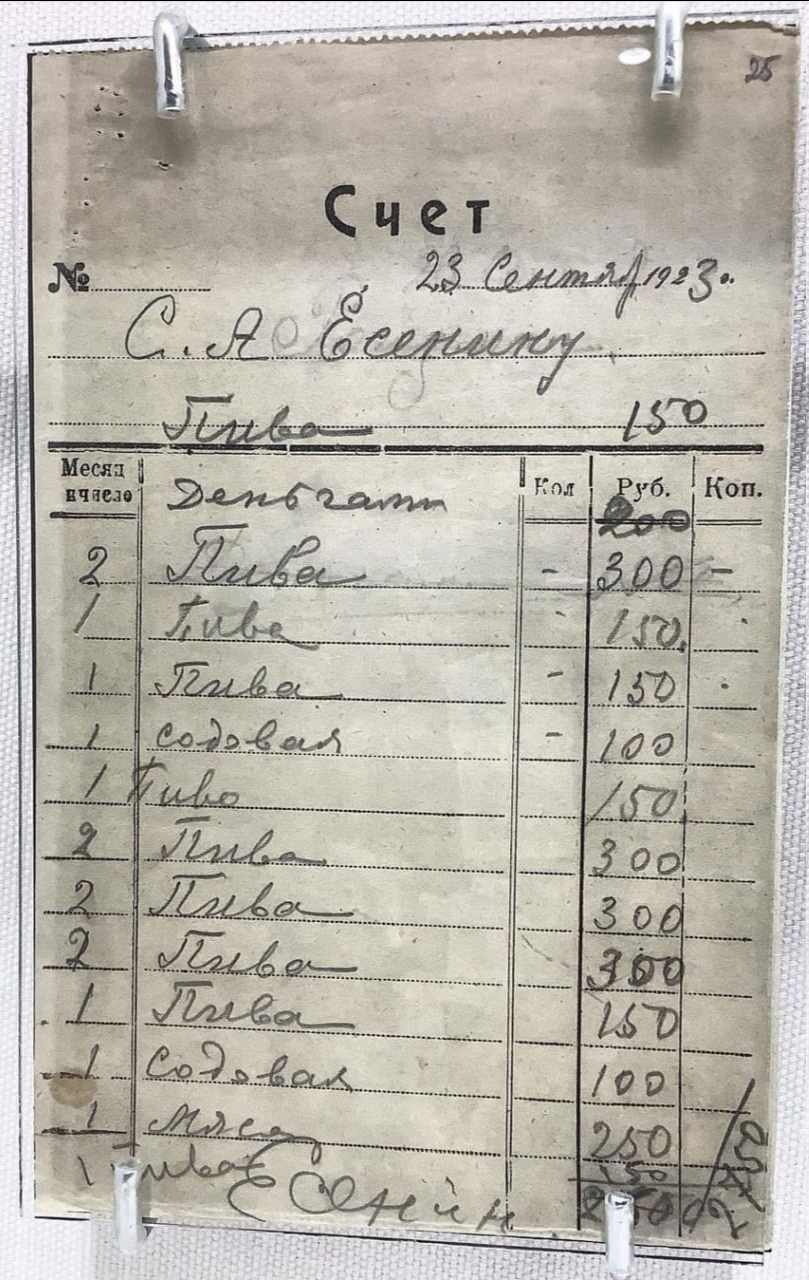 25
Счет
№ 23 Сентяб 1923 г.
С. А Есенину
Пива 150
Месяц и число Деньгами Кол Руб. Коп.
200
2 Пива - 300 -
1 Пива - 150
1 Пива - 150
1 содовая - 100
1 Пиво 150
2 Пива 300
2 Пива 300
2 Пива 300
1 Пива 150
1 Содовая 100
1 Мясо 250
1 Пиво 150
Есенин